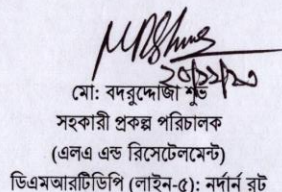 মো: বদরুদ্দোজা শুভ
সহকারী প্রকল্প পরিচালক
(এলএ এন্ড রিসেটেলমেন্ট)
ডিএমআরটিডিপি (লাইন-৫): নর্দার্ন রুট